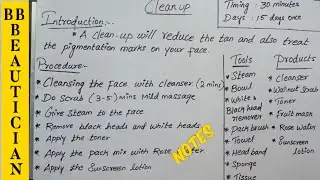 BB BEAUTICIAN
Clean up
Timing : 30 minutes
Days : 15 days once
Introduction:-
* A clean up will reduce the tan and also treat
the pigmentation marks on your face.
Procedure:-
* Cleansing the face with cleanser (2 mins)
* Do Scrub (3-5) mins Mild massage
* Give Steam to the face
* Remove black heads and white heads
* Apply the toner
* Apply the pack mix with Rose water
* Apply the Sunscreen lotion
Tools
* Steam
* Bowl
* White &
Black head
remover
* Pack brush
* Towel
* Head band
* Sponge
* Tissue
Products
* Cleanser
* Walnut Scrub
* Toner
* Fruit mask
* Rose Water
* Sunscreen
lotion
NOTES